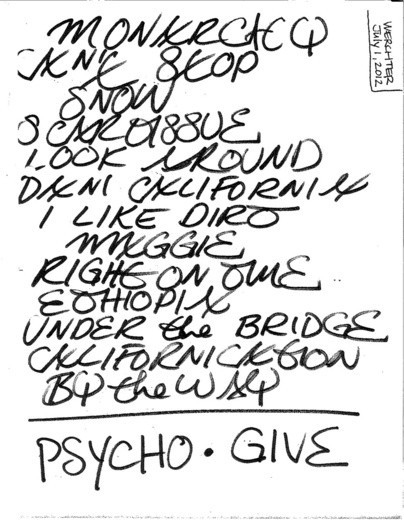 WERCHTER
July 1, 2012
MONARCHY
CANT STOP
SNOW
SCARTISSUE
LOOK AROUND
DANI CALIFORNIA
I LIKE DIRT
MAGGIE
RIGHT ON TIME
ETHIOPIA
UNDER the BRIDGE
CALIFORNICATION
BY the WAY
PSYCHO • GIVE